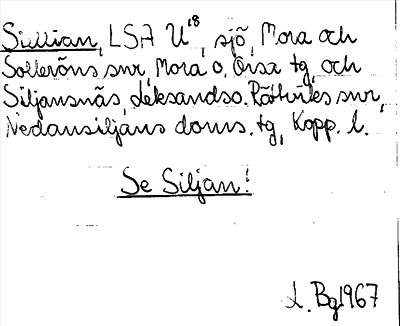 Sillian, LSA U18, sjö, Mora och
Solleröns snr, Mora o. Orsa tg, och
Siljansnäs, Leksands o. Rättviks snr,
Nedansiljans doms. tg, Kopp. l.
Se Siljan!
L. Bg 1967